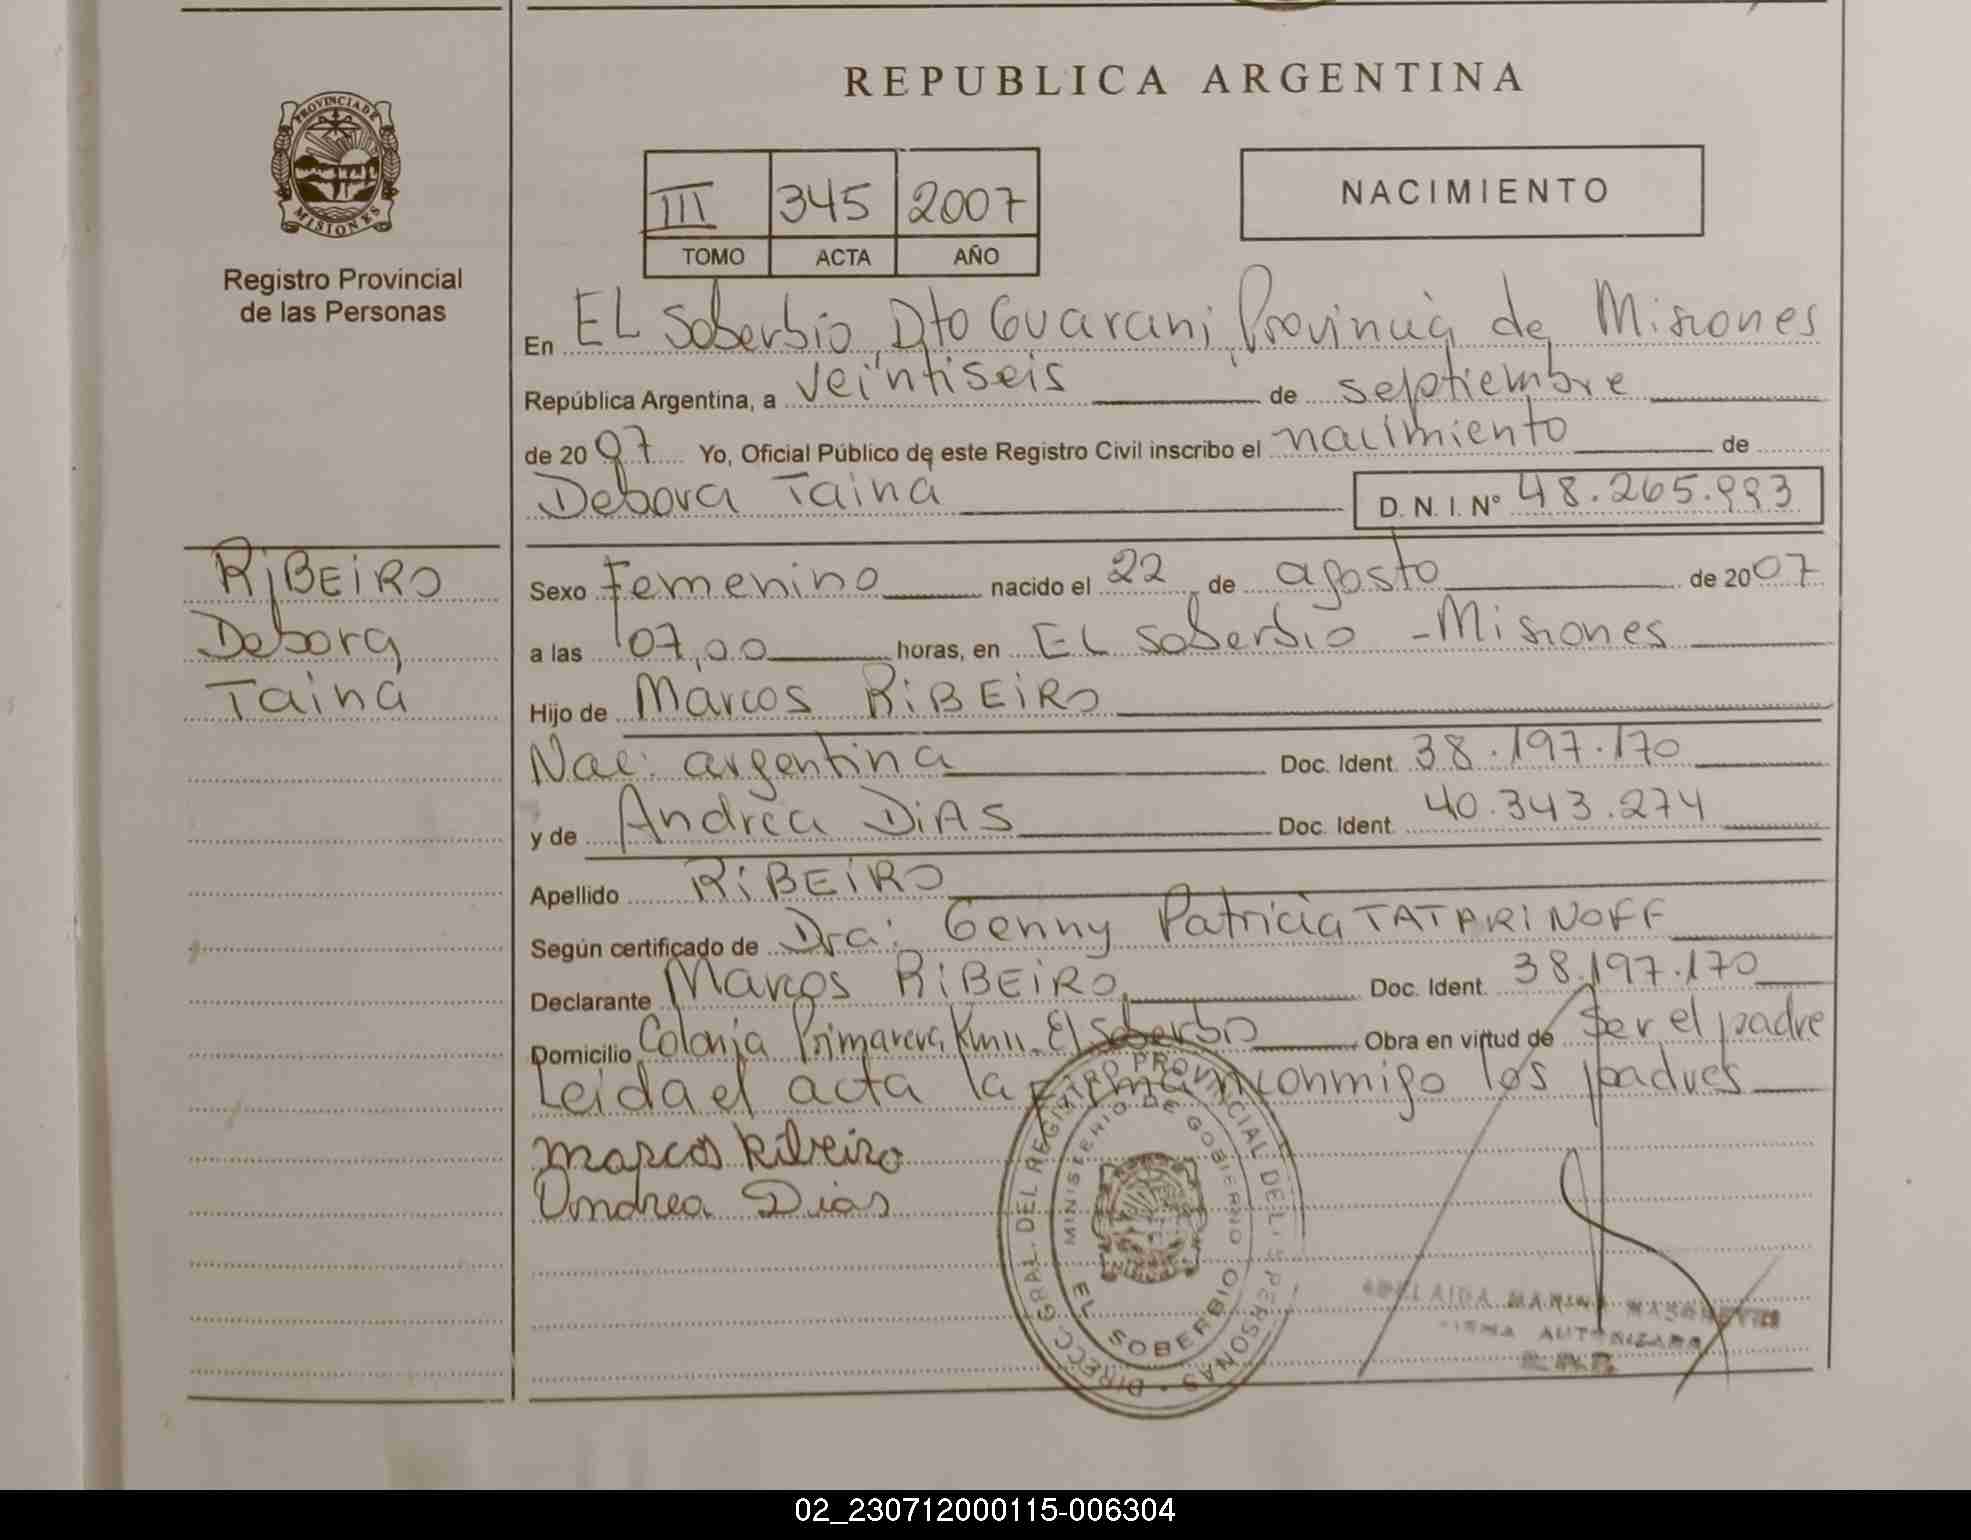 REPUBLICA ARGENTINA
PROVINCIA DE
MISIONES
Registro Provincial
de las Personas
III 345 2007
TOMO ACTA AÑO
NACIMIENTO
En EL Soberbio, Dto Guarani, Provincia de Misiones
República Argentina, a veintiseis de septiembre
de 2007 Yo, Oficial Público de este Registro Civil inscribo el nacimiento de
Debora Taina D. N. I. N° 48.265.993
RiBEiRO
Debora
Taina
Sexo Femenino nacido el 22 de agosto de 2007
a las 07,00 horas, en EL Soberbio - Misiones
Hijo de Marcos RiBEiRO
Nac: argentina Doc. Ident. 38.197.170
y de Andrea DiAS Doc. Ident. 40.343.274
Apellido RiBEiRO
Según certificado de Dra: Genny Patricia TATARINOFF
Declarante Marcos RiBEiRO Doc. Ident. 38.197.170
Domicilio Colonia Primavera, Km 11 - El Soberbio Obra en virtud de Ser el padre
Leida el acta la firman conmigo los padres
Marcos Ribeiro
Andrea Dias
DIRECC. GRAL. DEL REGISTRO PROVINCIAL DE LAS PERSONAS
MINISTERIO DE GOBIERNO
EL SOBERBIO
ADELAIDA MARINA
FIRMA AUTORIZADA
02_230712000115-006304